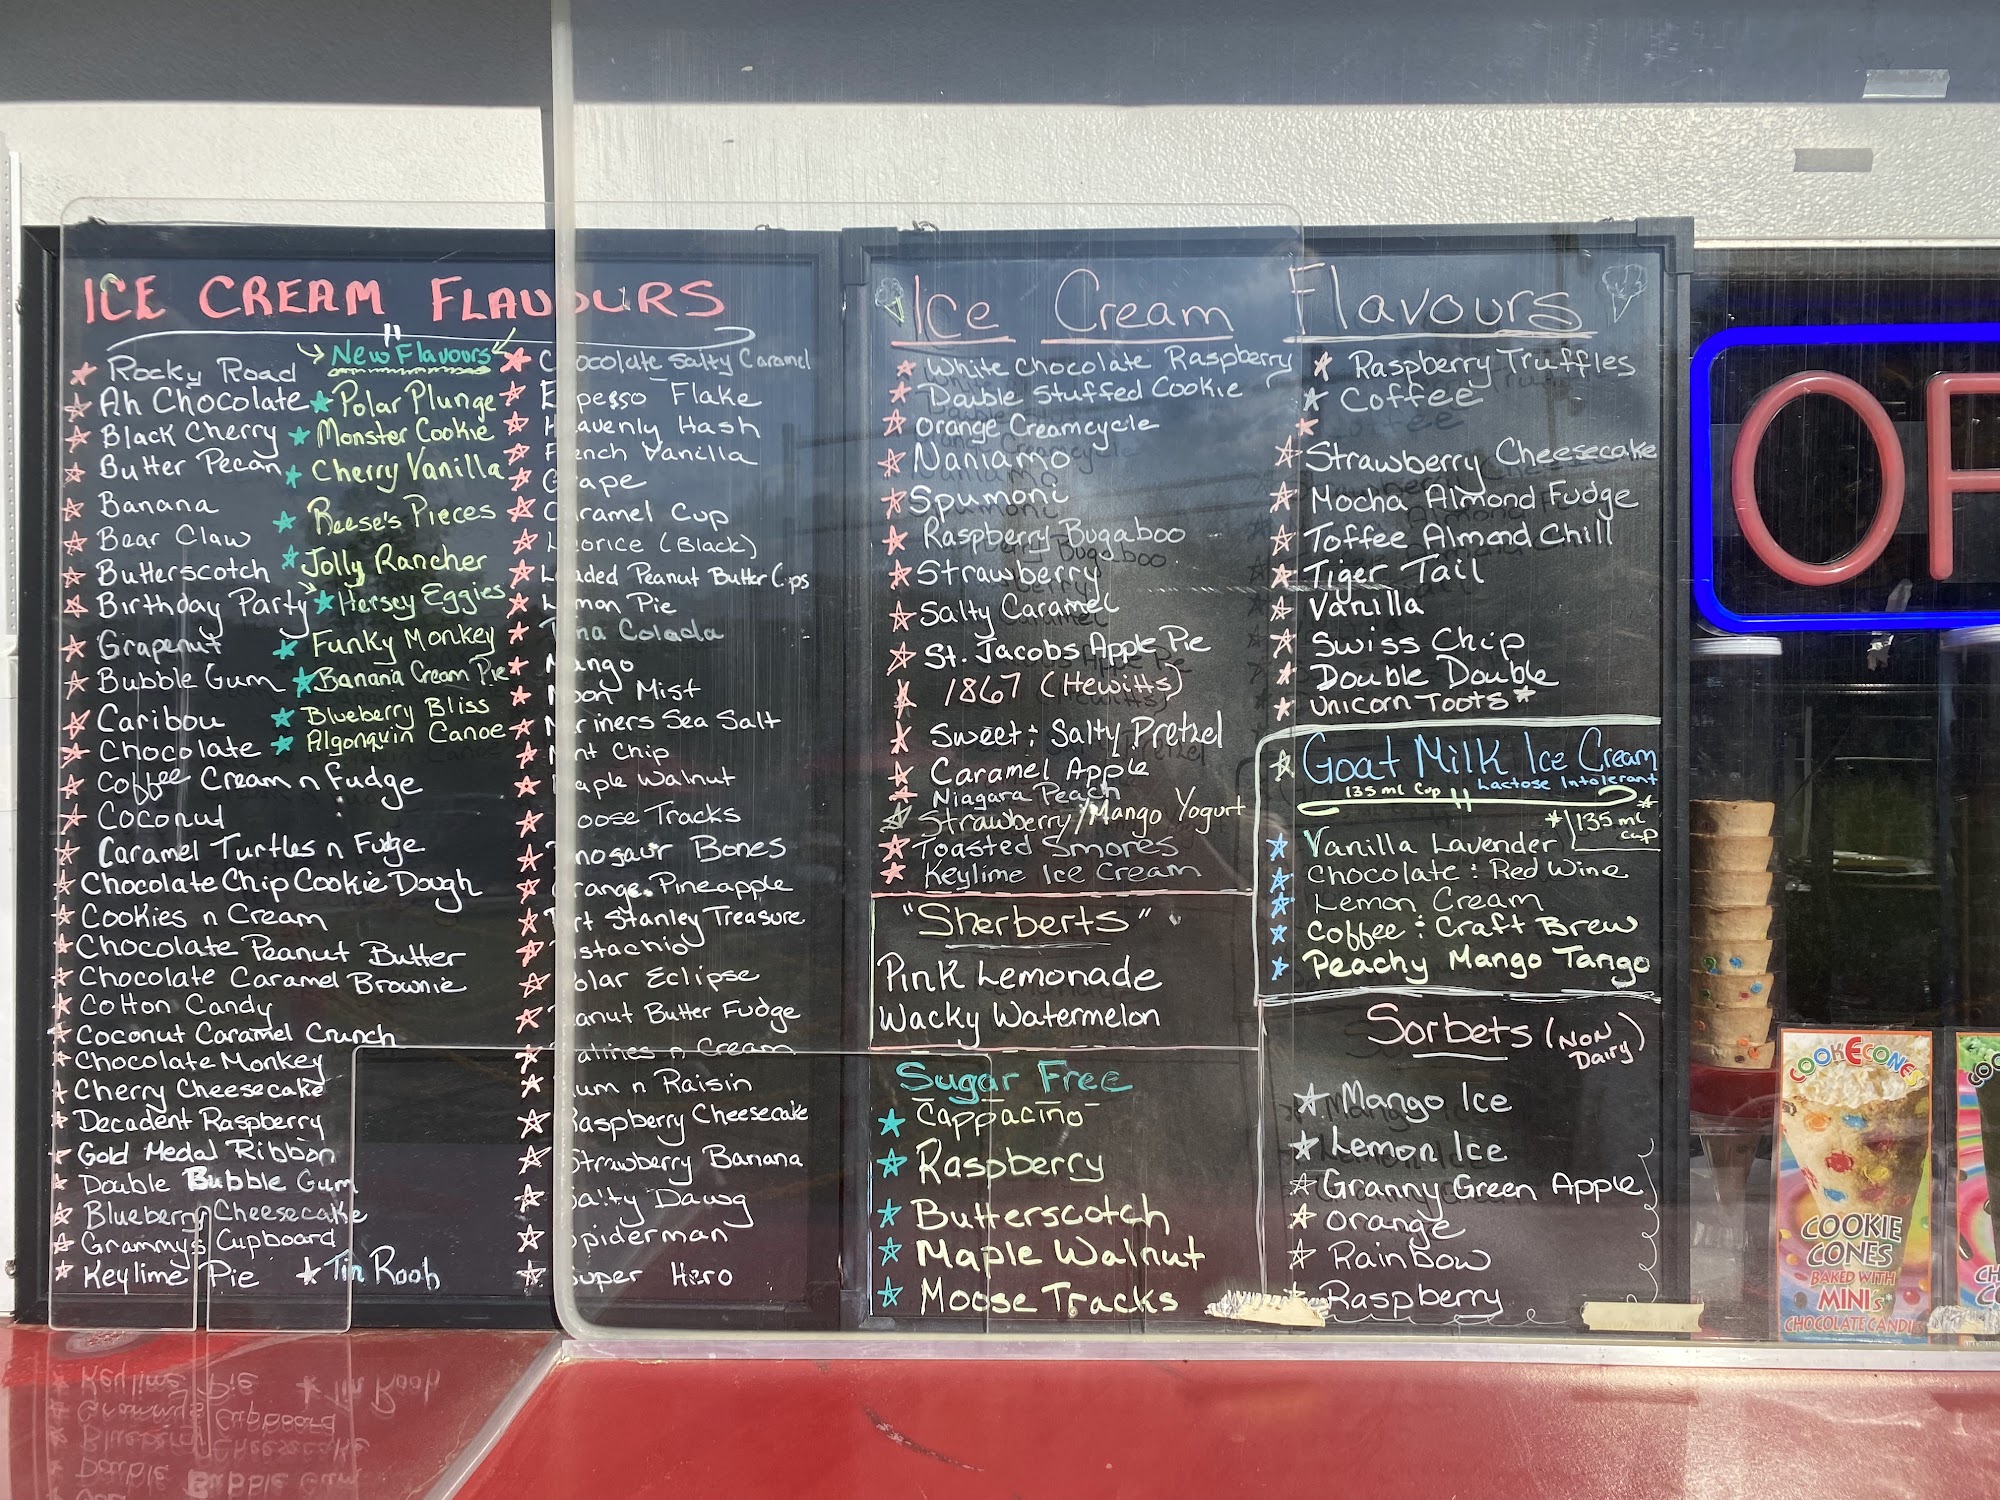 ICE CREAM FLAVOURS
Rocky Road
Ah Chocolate
Black Cherry
Butter Pecan
Banana
Bear Claw
Butterscotch
Birthday Party
Grapenut
Bubble Gum
Caribou
Chocolate
Coffee Cream n Fudge
Coconut
Caramel Turtles n Fudge
Chocolate Chip Cookie Dough
Cookies n Cream
Chocolate Peanut Butter
Chocolate Caramel Brownie
Cotton Candy
Coconut Caramel Crunch
Chocolate Monkey
Cherry Cheesecake
Decadent Raspberry
Gold Medal Ribbon
Double Bubble Gum
Blueberry Cheesecake
Grammy's Cupboard
Keylime Pie
Tin Roof
New Flavours
Polar Plunge
Monster Cookie
Cherry Vanilla
Reese's Pieces
Jolly Rancher
Hersey Eggies
Funky Monkey
Banana Cream Pie
Blueberry Bliss
Algonquin Canoe
Salty Caramel
Flake
Hash
Vanilla
Cup
(Black)
Peanut Butter
Pie
Colada
Mist
Sea Salt
Chip
Walnut
Tracks
Bones
Pineapple
Stanley Treasure
Eclipse
Butter Fudge
n Cream
n Raisin
Raspberry Cheesecake
Strawberry Banana
Salty Dawg
Spiderman
Super Hero
Ice Cream Flavours
White Chocolate Raspberry
Double Stuffed Cookie
Orange Creamcycle
Naniamo
Spumoni
Raspberry Bugaboo
Strawberry
Salty Caramel
St. Jacobs Apple Pie
1867 (Hewitts)
Sweet & Salty Pretzel
Caramel Apple
Niagara Peach
Strawberry/Mango Yogurt
Toasted Smores
Keylime Ice Cream
"Sherberts"
Pink Lemonade
Wacky Watermelon
Sugar Free
Cappacino
Raspberry
Butterscotch
Maple Walnut
Moose Tracks
Raspberry Truffles
Coffee
Strawberry Cheesecake
Mocha Almond Fudge
Toffee Almond Chill
Tiger Tail
Vanilla
Swiss Chip
Double Double
Unicorn Toots*
Goat Milk Ice Cream
135 ml Cup Lactose Intolerant
* 135 ml cup
Vanilla Lavender
Chocolate & Red Wine
Lemon Cream
Coffee & Craft Brew
Peachy Mango Tango
Sorbets (Non Dairy)
Mango Ice
Lemon Ice
Granny Green Apple
Orange
Rainbow
Raspberry
COOKECONES
COOKIE
CONES
BAKED WITH
MINIs
CHOCOLATE CANDI